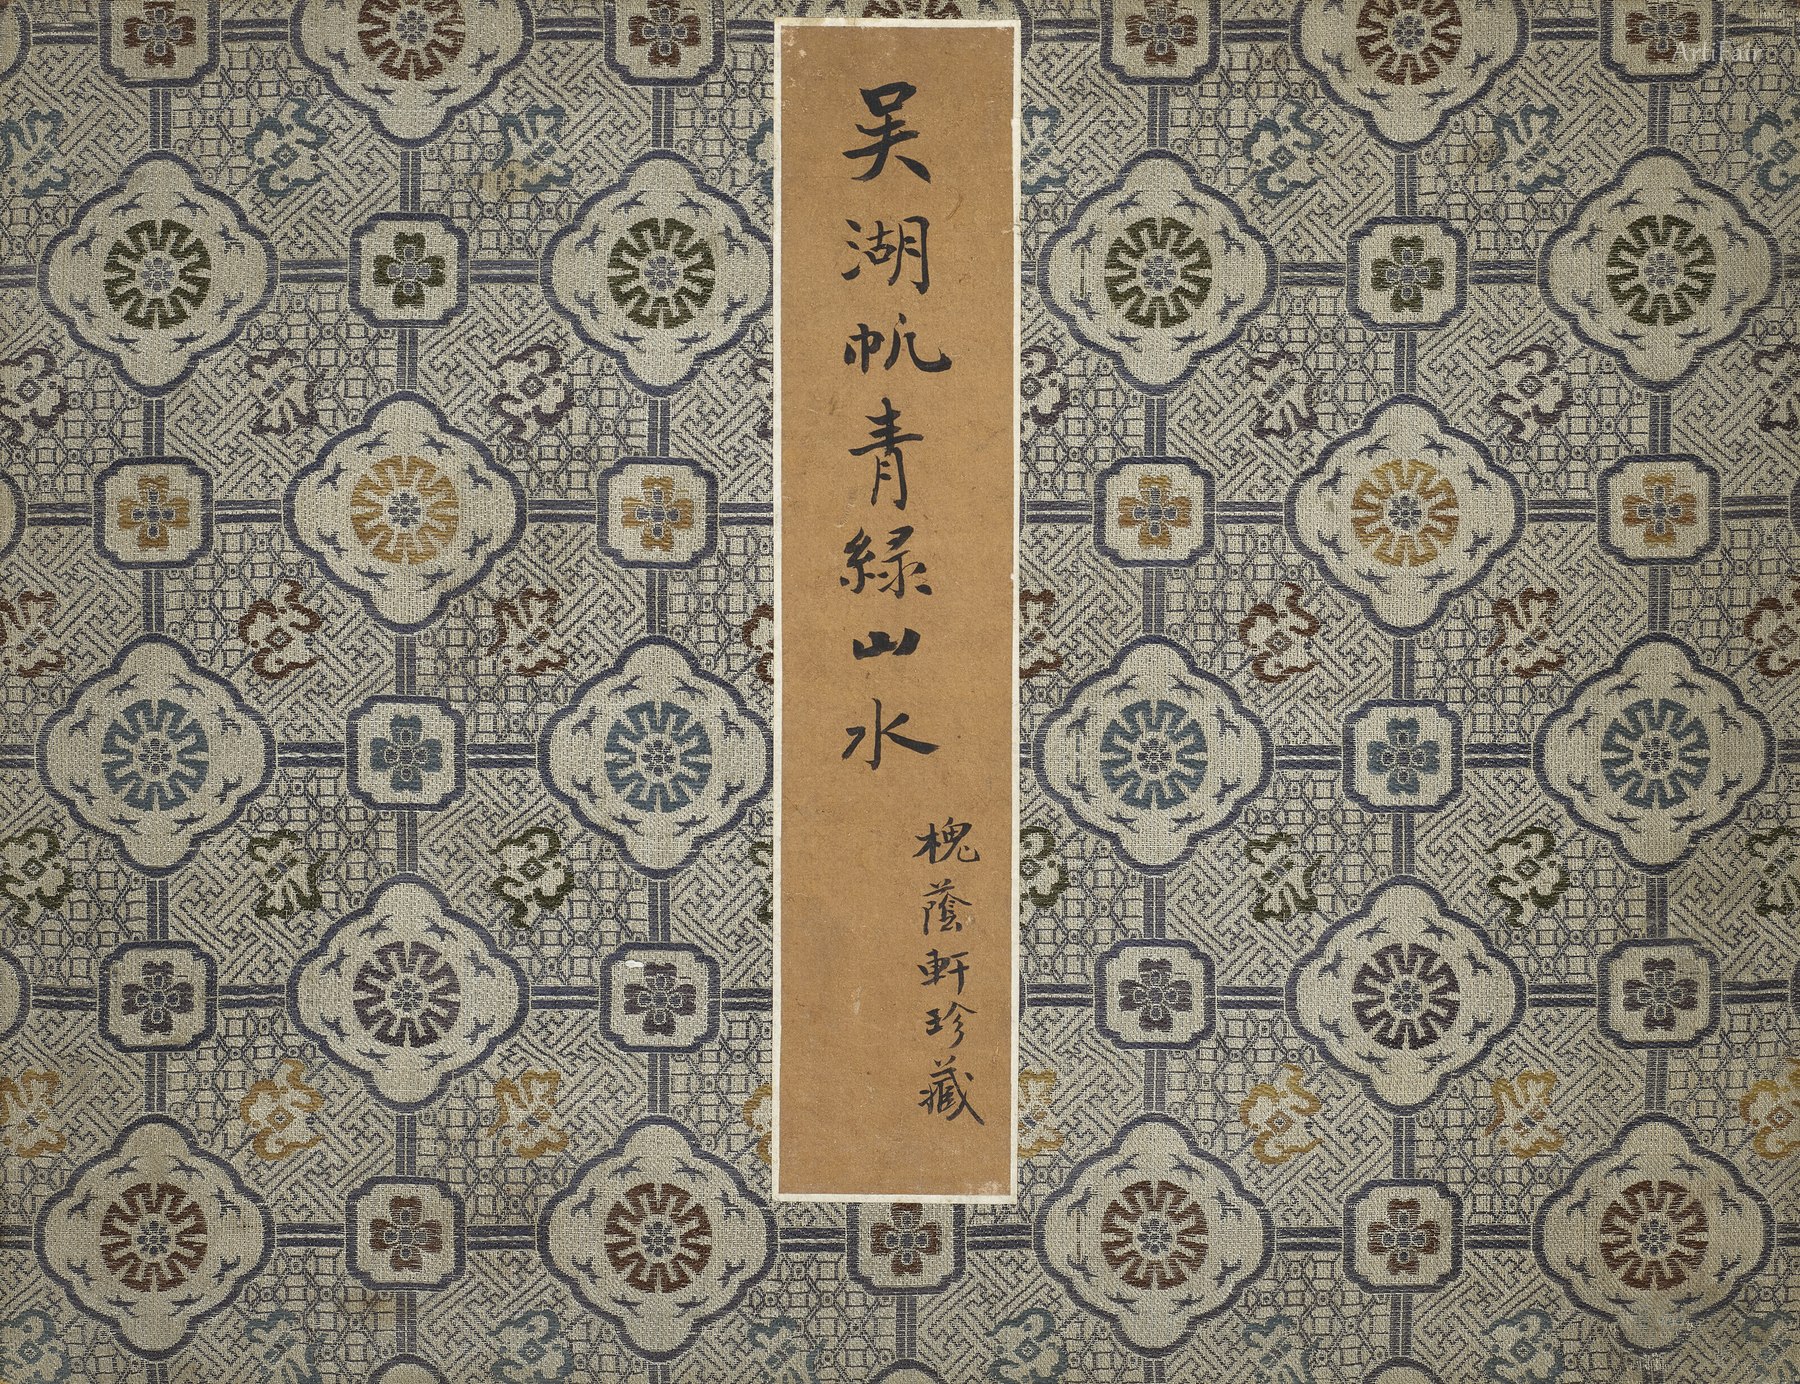 吴湖帆青綠山水
槐蔭軒珍藏
Art Fair